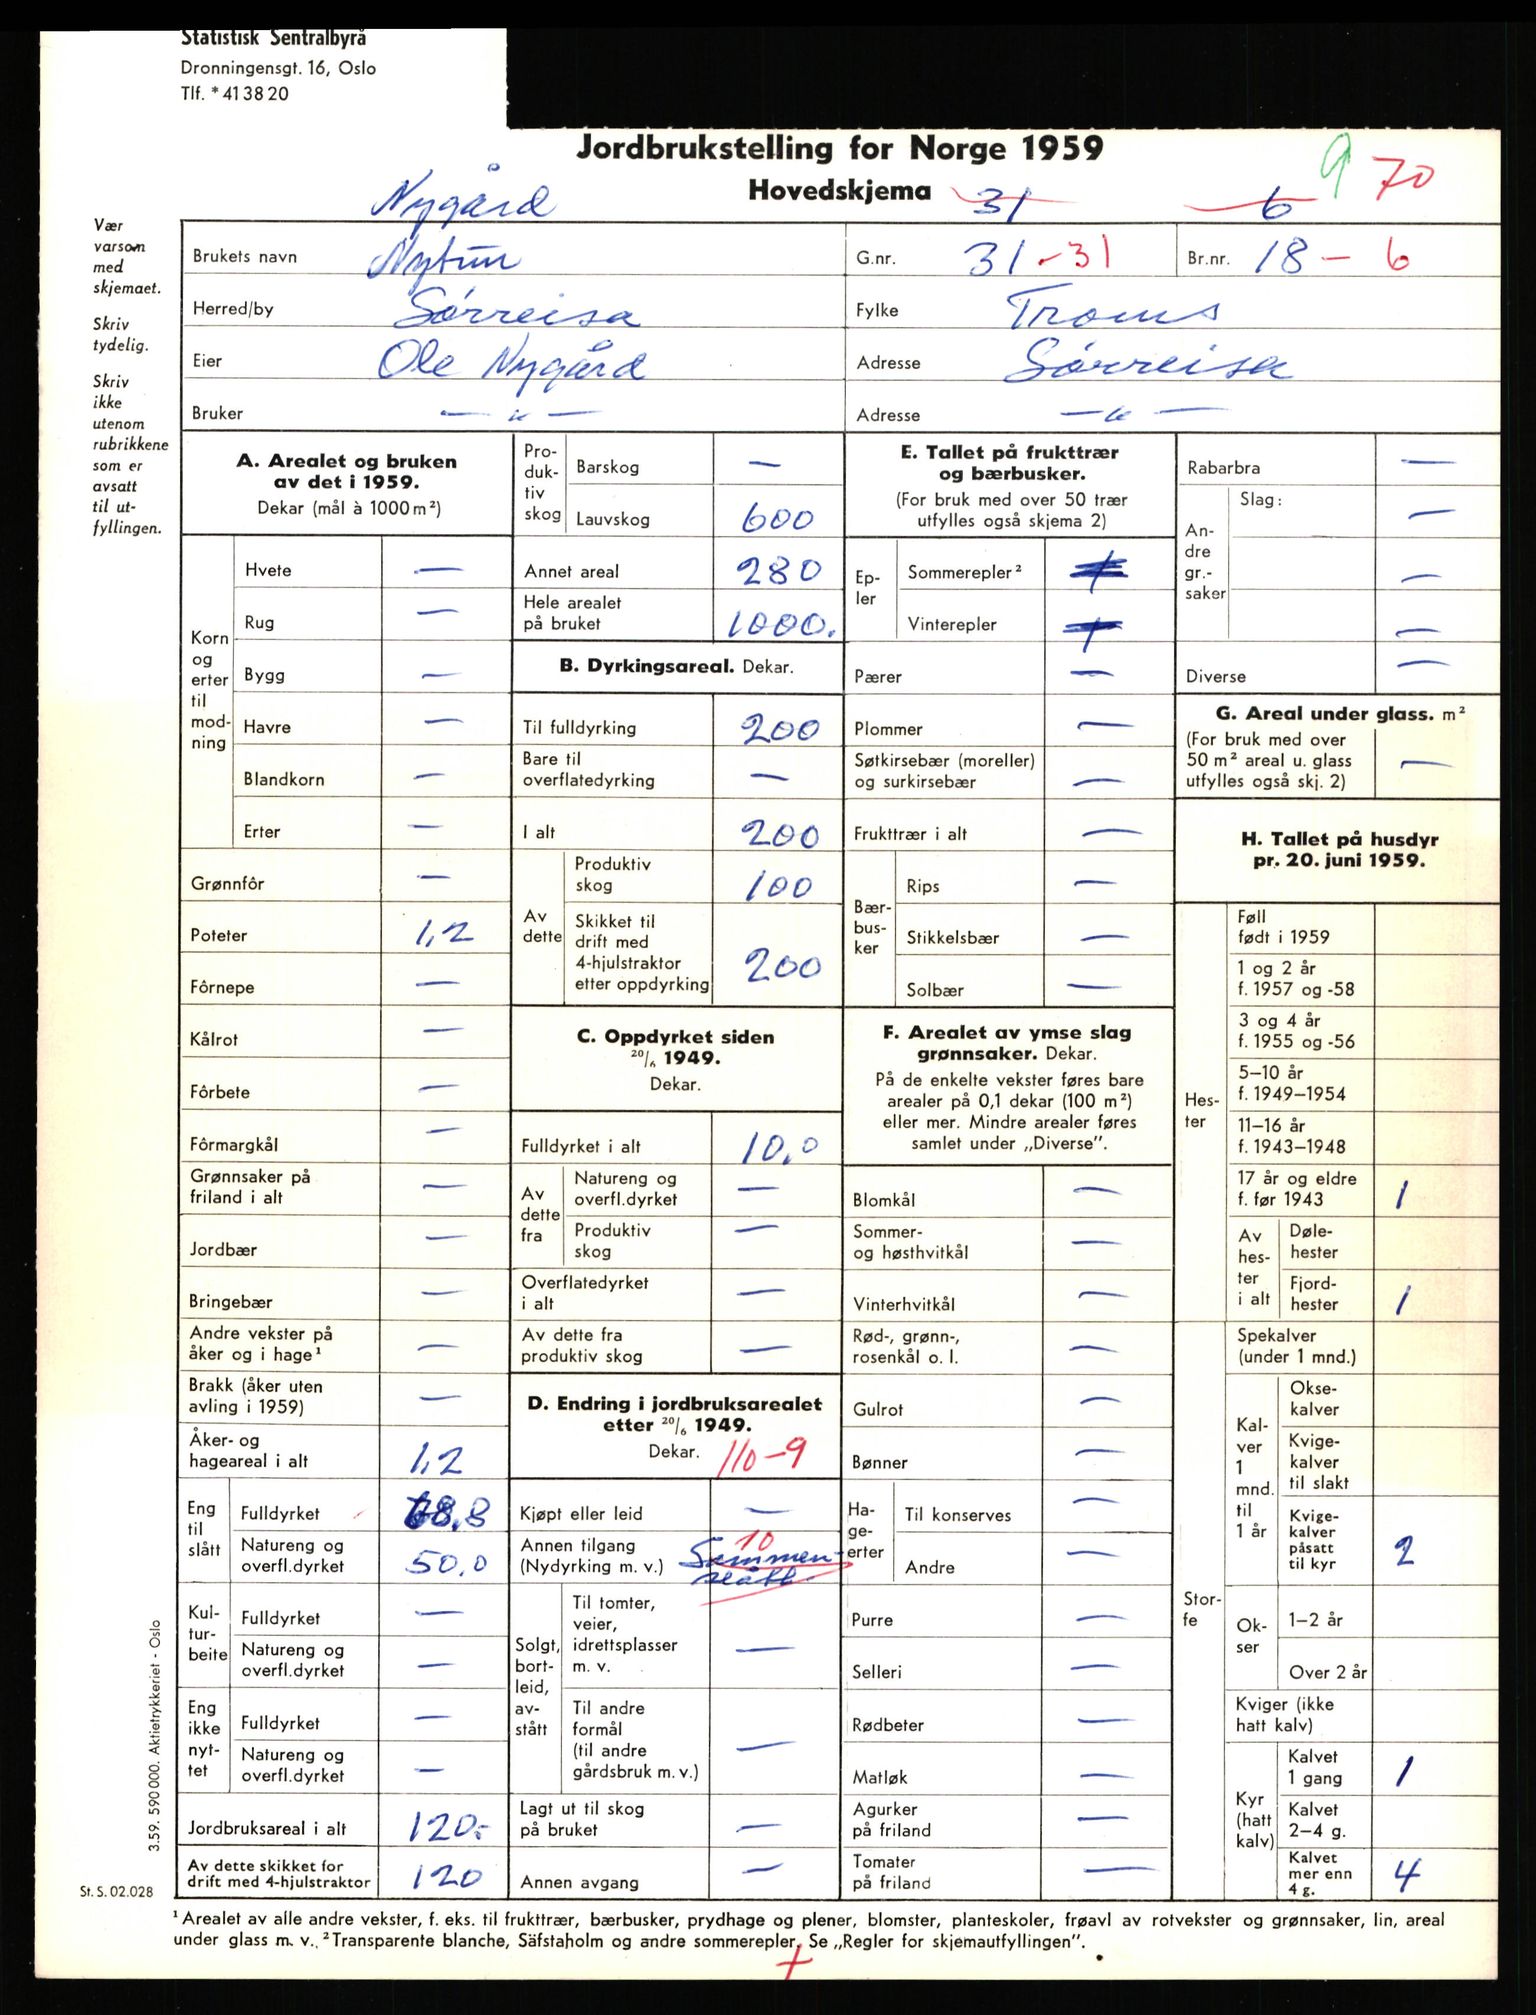 Statistisk Sentralbyrå
Dronningensgt. 16, Oslo
Tlf. * 41 38 20
Jordbrukstelling for Norge 1959
Hovedskjema
9 70
Nygård
31 6
Vær
varsom
med
skjemaet.
Skriv
tydelig.
Skriv
ikke
utenom
rubrikkene
som er
avsatt
til ut-
fyllingen.
Brukets navn Nytun G.nr. 31 - 31 Br.nr. 18 - 6
Herred/by Sørreisa Fylke Troms
Eier Ole Nygård Adresse Sørreisa
Bruker — " — Adresse — " —
A. Arealet og bruken
av det i 1959.
Dekar (mål à 1000 m²)
Korn
og
erter
til
mod-
ning
Hvete —
Rug —
Bygg —
Havre —
Blandkorn —
Erter —
Grønnfôr —
Poteter 1,2
Fôrnepe —
Kålrot —
Fôrbete —
Fôrmargkål —
Grønnsaker på
friland i alt —
Jordbær —
Bringebær —
Andre vekster på
åker og i hage¹ —
Brakk (åker uten
avling i 1959) —
Åker- og
hageareal i alt 1,2
Eng
til
slått
Fulldyrket 68,8
Natureng og
overfl.dyrket 50,0
Kul-
tur-
beite
Fulldyrket —
Natureng og
overfl.dyrket —
Eng
ikke
nyt-
tet
Fulldyrket —
Natureng og
overfl.dyrket —
Jordbruksareal i alt 120,-
Av dette skikket for
drift med 4-hjulstraktor 120
Pro-
duk-
tiv
skog
Barskog —
Lauvskog 600
Annet areal 280
Hele arealet
på bruket 1000.
B. Dyrkingsareal. Dekar.
Til fulldyrking 200
Bare til
overflatedyrking —
I alt 200
Av
dette
Produktiv
skog 100
Skikket til
drift med
4-hjulstraktor
etter oppdyrking 200
C. Oppdyrket siden
20/6 1949.
Dekar.
Fulldyrket i alt 10,0
Av
dette
fra
Natureng og
overfl.dyrket —
Produktiv
skog —
Overflatedyrket
i alt —
Av dette fra
produktiv skog —
D. Endring i jordbruksarealet
etter 20/6 1949.
Dekar. 110-9
Kjøpt eller leid —
Annen tilgang
(Nydyrking m. v.) 10
Sammen-
slått
Solgt,
bort-
leid,
av-
stått
Til tomter,
veier,
idrettsplasser
m. v. —
Til andre
formål
(til andre
gårdsbruk m. v.) —
Lagt ut til skog
på bruket —
Annen avgang —
E. Tallet på frukttrær
og bærbusker.
(For bruk med over 50 trær
utfylles også skjema 2)
Ep-
ler
Sommerepler²
Vinterepler
Pærer —
Plommer —
Søtkirsebær (moreller)
og surkirsebær —
Frukttrær i alt —
Bær-
bus-
ker
Rips —
Stikkelsbær —
Solbær —
F. Arealet av ymse slag
grønnsaker. Dekar.
På de enkelte vekster føres bare
arealer på 0,1 dekar (100 m²)
eller mer. Mindre arealer føres
samlet under „Diverse”.
Blomkål —
Sommer-
og høsthvitkål —
Vinterhvitkål —
Rød-, grønn-,
rosenkål o. l. —
Gulrot —
Bønner —
Ha-
ge-
erter
Til konserves —
Andre —
Purre —
Selleri —
Rødbeter —
Matløk —
Agurker
på friland —
Tomater
på friland —
Rabarbra —
An-
dre
gr.-
saker
Slag: —
—
—
Diverse —
G. Areal under glass. m²
(For bruk med over
50 m² areal u. glass
utfylles også skj. 2) —
H. Tallet på husdyr
pr. 20. juni 1959.
Hes-
ter
Føll
født i 1959
1 og 2 år
f. 1957 og -58
3 og 4 år
f. 1955 og -56
5–10 år
f. 1949–1954
11–16 år
f. 1943–1948
17 år og eldre
f. før 1943 1
Av
hes-
ter
i alt
Døle-
hester
Fjord-
hester 1
Stor-
fe
Spekalver
(under 1 mnd.)
Kal-
ver
1
mnd.
til
1 år
Okse-
kalver
Kvige-
kalver
til slakt
Kvige-
kalver
påsatt
til kyr 2
Ok-
ser
1–2 år
Over 2 år
Kviger (ikke
hatt kalv)
Kyr
(hatt
kalv)
Kalvet
1 gang 1
Kalvet
2–4 g.
Kalvet
mer enn
4 g. 4
3.59. 590 000. Aktietrykkeriet - Oslo
St. S. 02.028
¹ Arealet av alle andre vekster, f. eks. til frukttrær, bærbusker, prydhage og plener, blomster, planteskoler, frøavl av rotvekster og grønnsaker, lin, areal
under glass m. v. ² Transparente blanche, Säfstaholm og andre sommerepler. Se „Regler for skjemautfyllingen”.
+